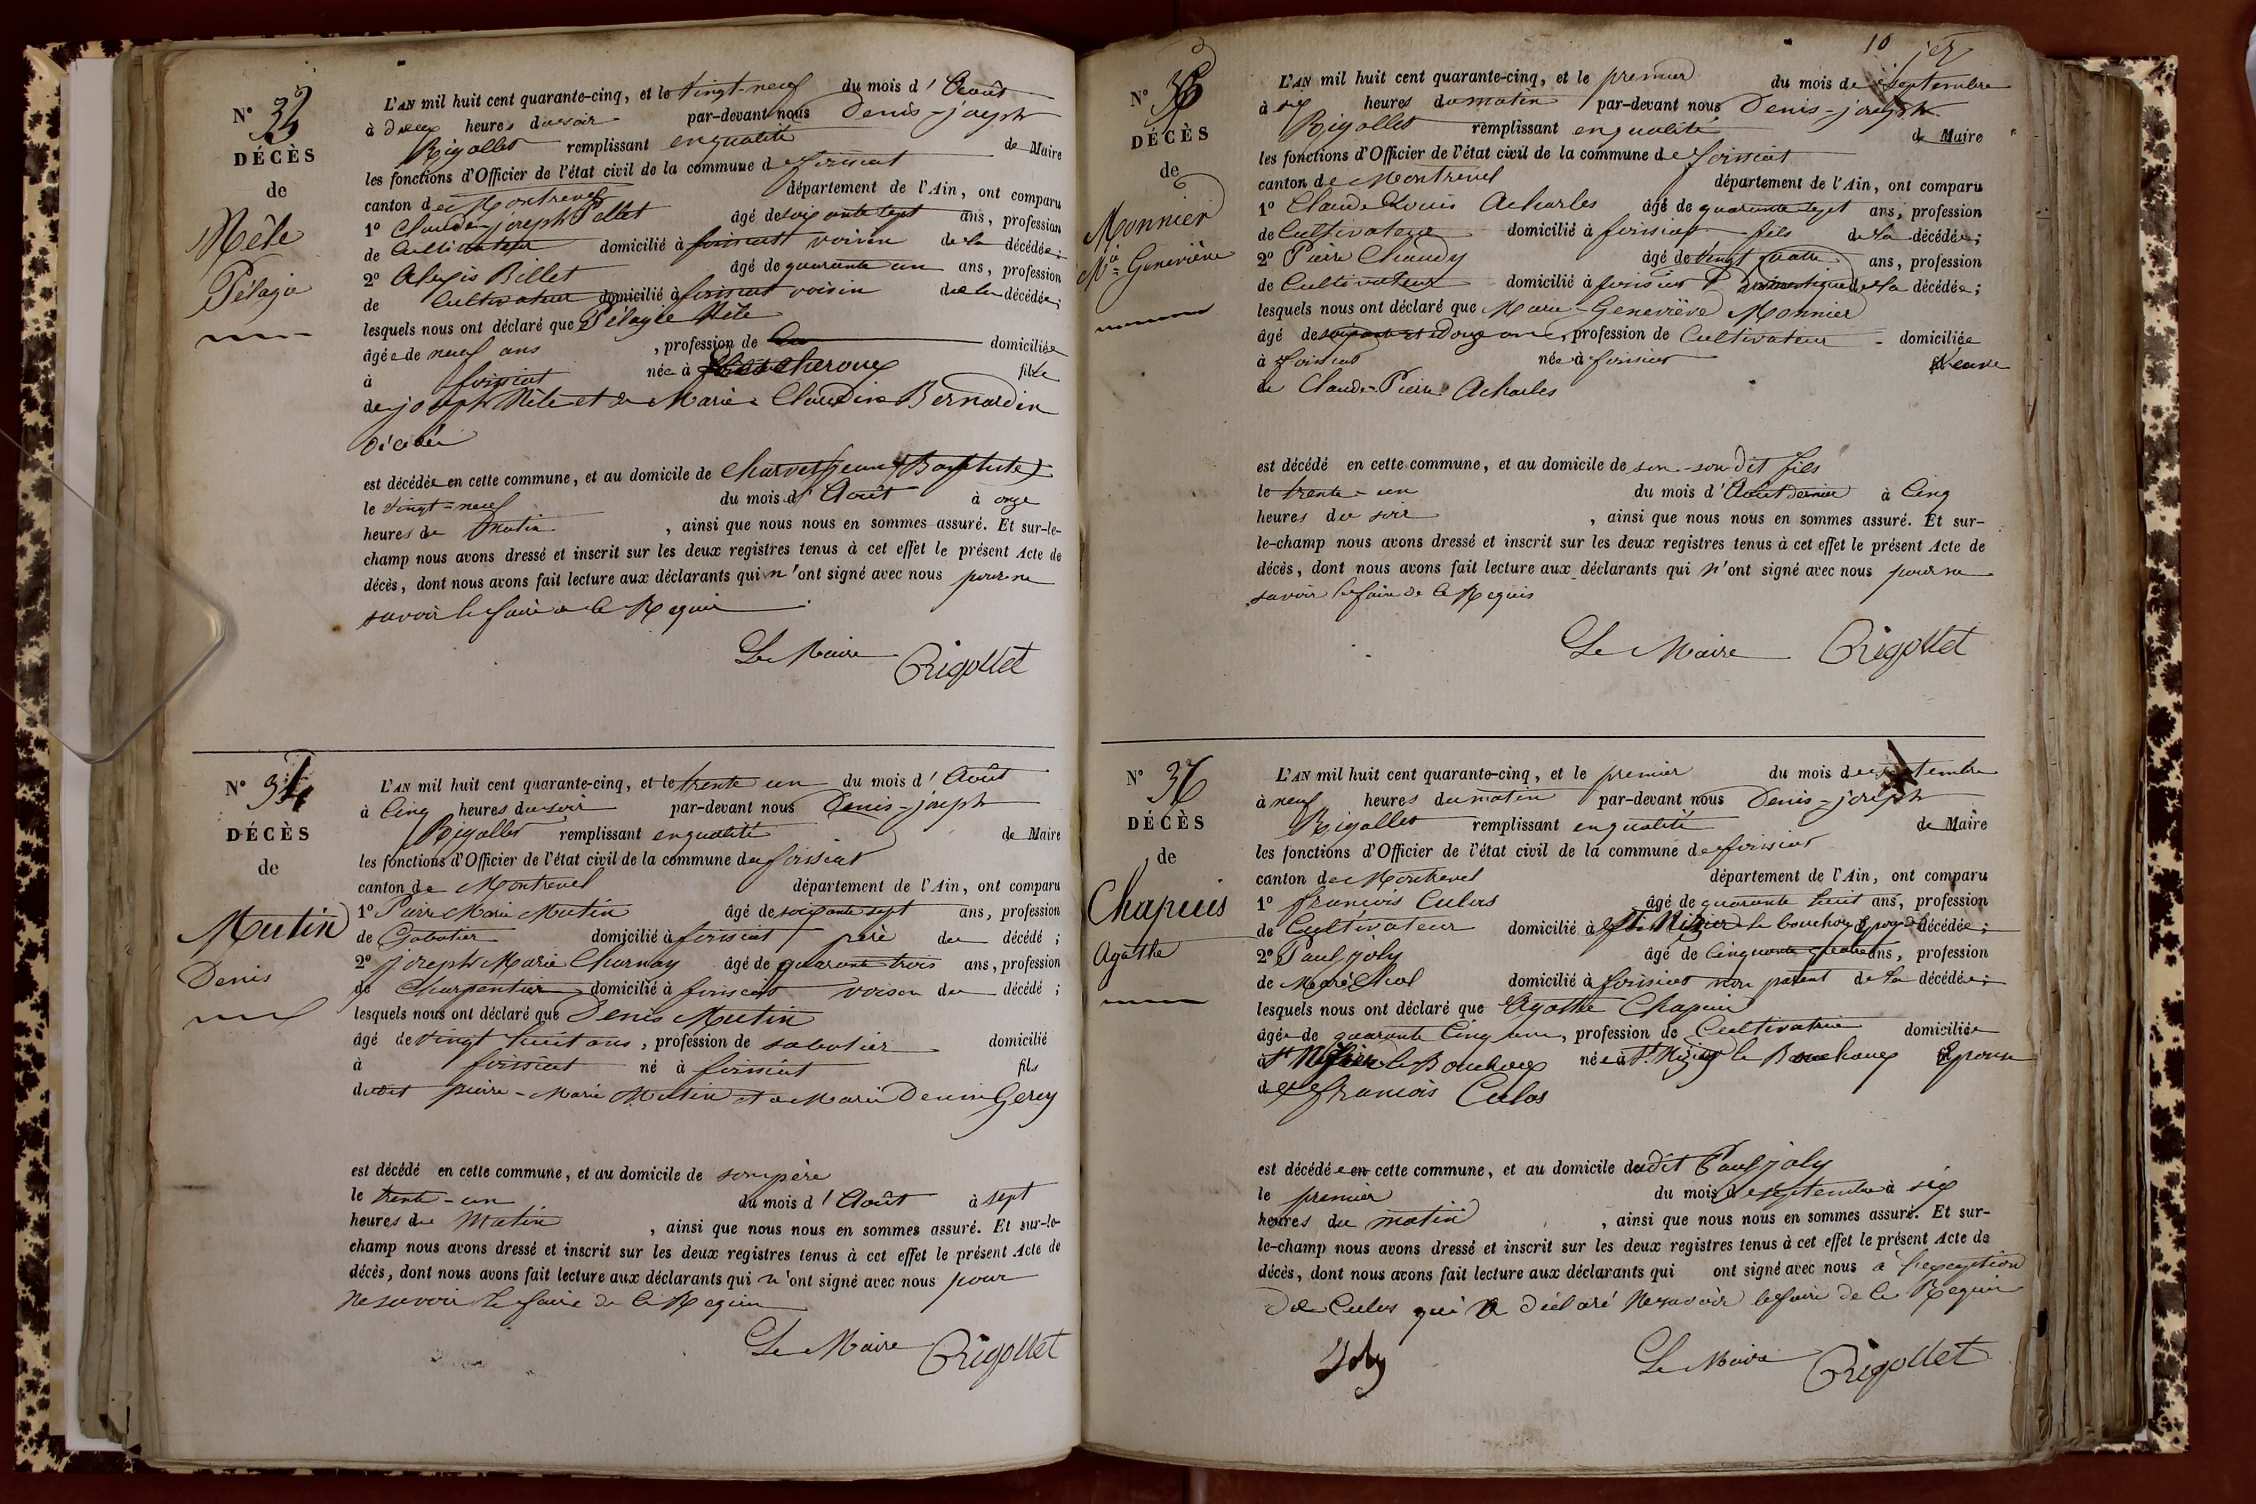 N° 33
DÉCÈS
de
Nèle
Pélagie
L'AN mil huit cent quarante-cinq, et le vingt-neuf du mois d'Août
à deux heures du soir par-devant nous Denis-joseph
Rigollet remplissant en qualité de Maire
les fonctions d'Officier de l'état civil de la commune de foissiat
canton de Montrevel département de l'Ain, ont comparu
1° Claude joseph Pellet âgé de soixante sept ans, profession
de Cultivateur domicilié à foissiat voisin de la décédée;
2° Alexis Billet âgé de quarante un ans, profession
de Cultivateur domicilié à foissiat voisin de la décédée;
lesquels nous ont déclaré que Pélagie Nèle
âgée de neuf ans , profession de domiciliée
à foissiat née à Etrez Cheroux fille
de joseph Nèle et de Marie Claudine Bernardin
décédée
est décédée en cette commune, et au domicile de Charvet (jean Baptiste)
le vingt-neuf du mois d'Août à onze
heures du Matin , ainsi que nous nous en sommes assuré. Et sur-le-
champ nous avons dressé et inscrit sur les deux registres tenus à cet effet le présent Acte de
décès, dont nous avons fait lecture aux déclarants qui n'ont signé avec nous pour ne
savoir le faire de ce Requis
Le Maire Rigollet
N° 34
DÉCÈS
de
Mutin
Denis
L'AN mil huit cent quarante-cinq, et le trente un du mois d'Août
à Cinq heures du soir par-devant nous Denis-joseph
Rigollet remplissant en qualité de Maire
les fonctions d'Officier de l'état civil de la commune de foissiat
canton de Montrevel département de l'Ain, ont comparu
1° Pierre Marie Mutin âgé de soixante sept ans, profession
de Sabotier domicilié à foissiat père du décédé;
2° joseph Marie Charnay âgé de quarante trois ans, profession
de Charpentier domicilié à foissiat voisin du décédé;
lesquels nous ont déclaré que Denis Mutin
âgé de vingt huit ans, profession de sabotier domicilié
à foissiat né à foissiat fils
dudit pierre-Marie Mutin et de Marie Denise Gerey
est décédé en cette commune, et au domicile de son père
le trente-un du mois d'Août à sept
heures du Matin , ainsi que nous nous en sommes assuré. Et sur-le-
champ nous avons dressé et inscrit sur les deux registres tenus à cet effet le présent Acte de
décès, dont nous avons fait lecture aux déclarants qui n'ont signé avec nous pour
ne savoir le faire de ce Requis
Le Maire Rigollet
10
N° 36
DÉCÈS
de
Monnier
Mie Geneviève
L'AN mil huit cent quarante-cinq, et le premier du mois de septembre
à six heures du matin par-devant nous Denis-joseph
Rigollet remplissant en qualité de Maire
les fonctions d'Officier de l'état civil de la commune de foissiat
canton de Montrevel département de l'Ain, ont comparu
1° Claude Louis Acharles âgé de quarante sept ans, profession
de Cultivateur domicilié à foissiat fils de la décédée;
2° Pierre Chaudy âgé de vingt quatre ans, profession
de Cultivateur domicilié à foissiat domestique de la décédée;
lesquels nous ont déclaré que Marie-Geneviève Monnier
âgé de soixante et douze ans, profession de Cultivateur domiciliée
à foissiat née à foissiat Veuve
de Claude-Pierre Acharles
est décédé en cette commune, et au domicile de son-sondit fils
le trente-un du mois d'Août dernier à Cinq
heures du soir , ainsi que nous nous en sommes assuré. Et sur-
le-champ nous avons dressé et inscrit sur les deux registres tenus à cet effet le présent Acte de
décès, dont nous avons fait lecture aux déclarants qui n'ont signé avec nous pour ne
savoir le faire de ce Requis
Le Maire Rigollet
N° 37
DÉCÈS
de
Chapuis
Agathe
L'AN mil huit cent quarante-cinq, et le premier du mois de septembre
à neuf heures du matin par-devant nous Denis-joseph
Rigollet remplissant en qualité de Maire
les fonctions d'Officier de l'état civil de la commune de foissiat
canton de Montrevel département de l'Ain, ont comparu
1° françois Culas âgé de quarante huit ans, profession
de Cultivateur domicilié à St Nizier le bouchoux Epoux de la décédée;
2° Paul joly âgé de Cinquante quatre ans, profession
de Maréchal domicilié à foissiat non parent de la décédée;
lesquels nous ont déclaré que Agathe Chapuis
âgée de quarante Cinq ans, profession de Cultivatrice domiciliée
à St Nizier le Bouchoux née à St Nizier le Bouchoux Epouse
de françois Culas
est décédée en cette commune, et au domicile dudit Paul joly
le premier du mois de septembre à six
heures du matin , ainsi que nous nous en sommes assuré. Et sur-
le-champ nous avons dressé et inscrit sur les deux registres tenus à cet effet le présent Acte de
décès, dont nous avons fait lecture aux déclarants qui ont signé avec nous à l'exception
de Culas qui a déclaré ne savoir le faire de ce Requis
Joly Le Maire Rigollet